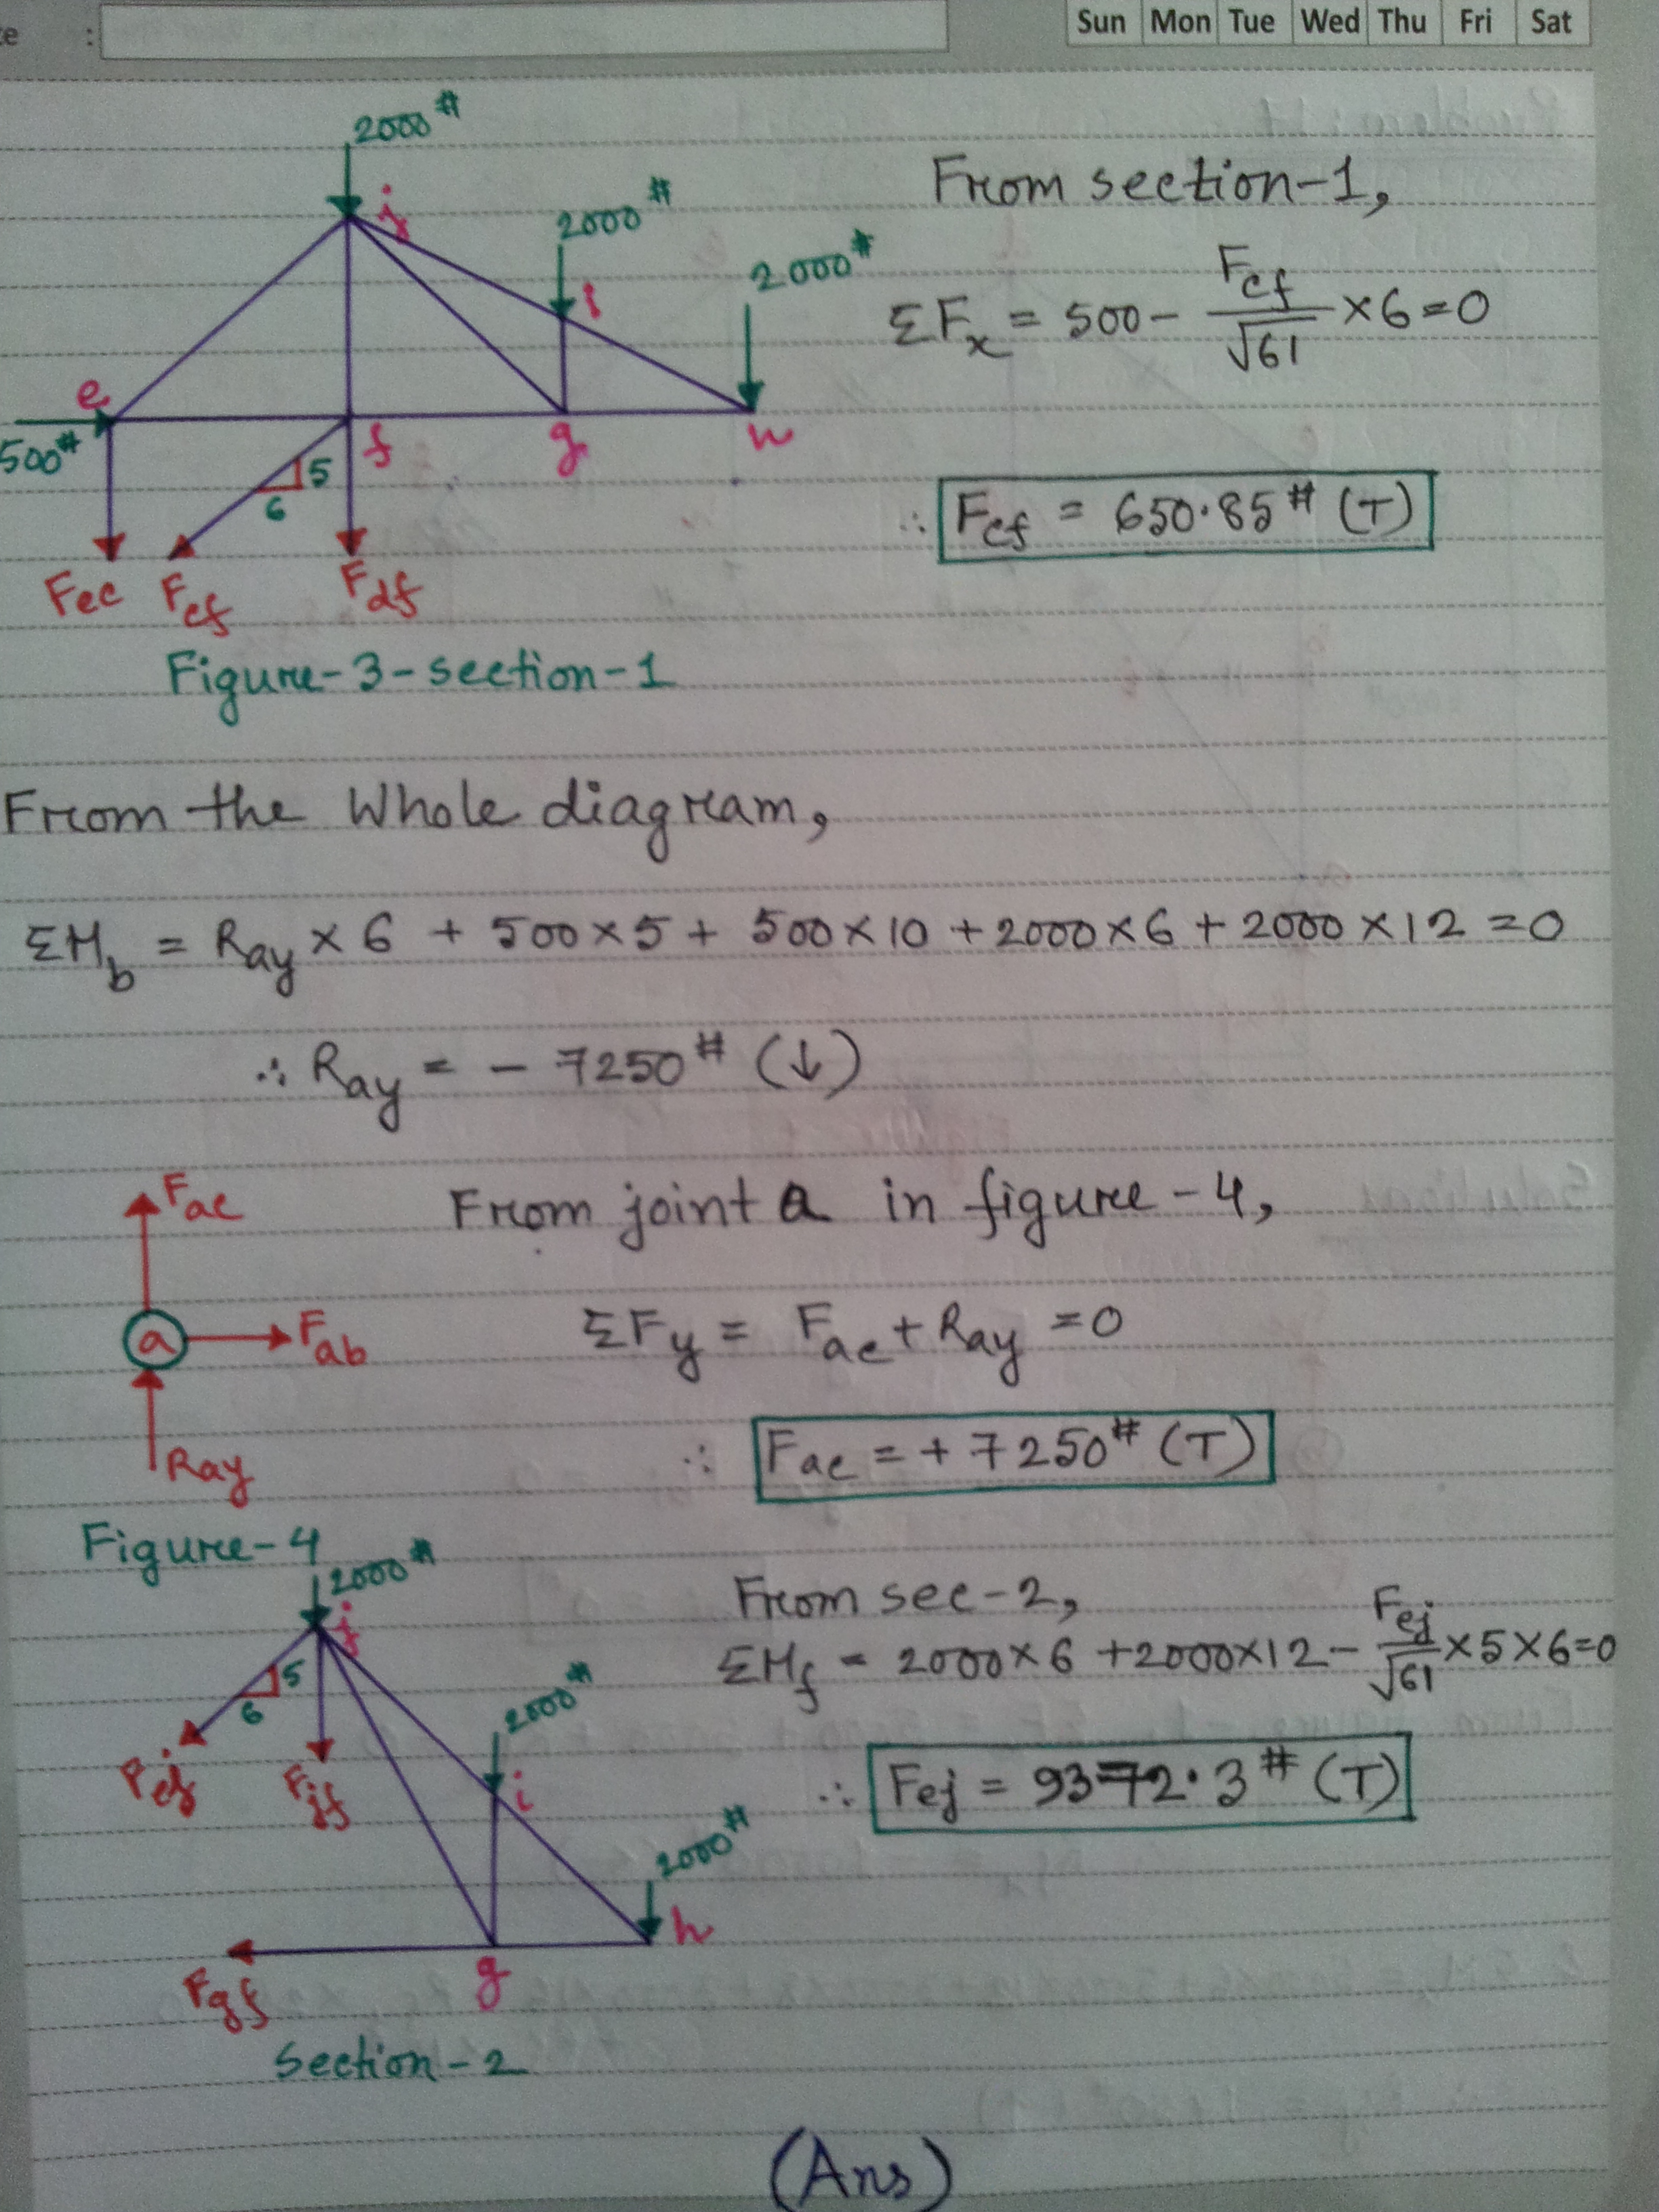 e :
Sun Mon Tue Wed Thu Fri Sat
2000#
j
2000#
i
2000#
e
500#
f
g
h
5
6
Fec Fcf Fdf
Figure-3-section-1
From section-1,
ΣFx = 500 - Fcf/√61 × 6 = 0
∴ Fcf = 650.85# (T)
From the Whole diagram,
ΣMb = Ray × 6 + 500×5 + 500×10 + 2000×6 + 2000×12 = 0
∴ Ray = - 7250# (↓)
Fac
a
Fab
Ray
Figure-4
From joint a in figure-4,
ΣFy = Fac + Ray = 0
∴ Fac = + 7250# (T)
2000#
j
5
6
Fej
Fjf
2000#
i
2000#
h
g
Fgf
Section-2
From sec-2,
ΣMf = 2000×6 + 2000×12 - Fej/√61 × 5 × 6 = 0
∴ Fej = 9372.3# (T)
(Ans)